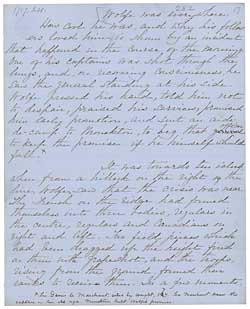 Wolfe was everywhere.
How cool he was, and why his follow-
ers loved him, is shown by an incident
that happened in the course of the morning.
One of his captains was shot through the
lungs, and, on recovering consciousness, he
saw the general standing at his side.
Wolfe pressed his hand, told him not
to despair, praised his services, promised
him early promotion, and sent an aide-
de-camp to Monckton, to beg that officer
to keep the promise if he himself should
fall.
It was towards ten o'clock
when, from a hillock on the right of the
line, Wolfe saw that the crisis was near.
The French on the ridge had formed
themselves into three bodies, regulars in
the centre, regulars and Canadians on
right and left. Two field pieces which
had been dragged up the heights fired
on them with grapeshot, and the troops,
rising from the ground, formed their
ranks to receive them. In a few moments